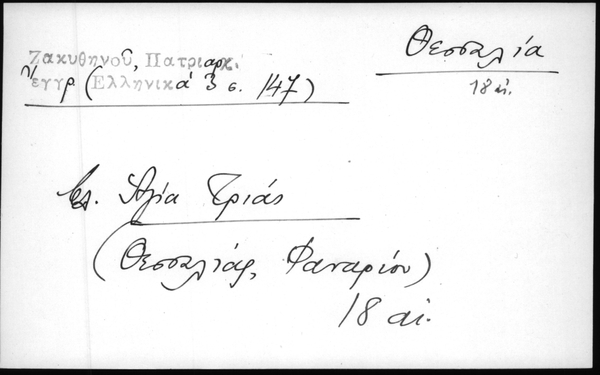 Ζακυθηνοῦ, Πατριαρχ.
ἔγγρ. (Ἑλληνικά 3 σ. 147)
Θεσσαλία
18 αἰ.
Ἁγία Τριάς
(Θεσσαλίας, Φαναρίου)
18 αἰ.